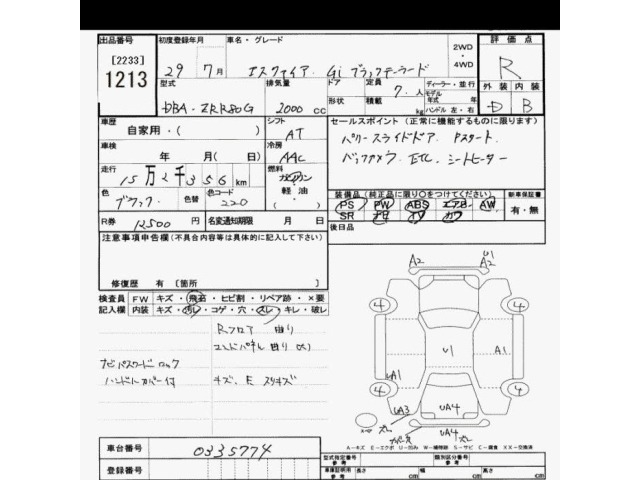 出品番号
[2233]
1213
初度登録年月
29年7月
車名・グレード
エスクァイア Gi ブラックテーラード
2WD
・
4WD
評価点
R
外装 内装
D B
型式
DBA-ZRR80G
排気量
2000 cc
ドア
形状
定員
7 人
積載
kg
ディーラー・並行
モデル
年式 年
ハンドル 左・右
車歴
自家用・( )
シフト
AT
車検
年 月( 日)
冷房
AAC
走行
15万2千356km
燃料
ガソリン
軽油
色
ブラック
色替
色コード
220
R券
12500円
名変通知期限 月 日
セールスポイント(正常に機能するものに限ります)
パワースライドドア Pスタート
バックカメラ ETC シートヒーター
装備品(純正品に限り〇をつけてください)
PS PW ABS エアB AW
SR ナビ カワ
新車保証書
有・無
後日品
注意事項申告欄(不具合内容等は具体的に記入して下さい)
修復歴 有 [箇所 ]
検査員
記入欄
FW キズ・飛石・ヒビ割・リペア跡・X要
内装 キズ・汚レ・コゲ・穴・スレ・キレ・破レ
Rフロア 曲り
エンドパネル 曲り(大)
ナビパスワードロック
ハンドルカバー付
キズ、E スリキズ
A2 U1
A2
4 4
U1 A1
UA1
4 4
UA3
UA4
UA4
スレ
A-キズ E-エクボ U-凹み W-補修跡 S-サビ C-腐食 XX-交換済
車台番号
0335774
登録番号
型式指定番号
参考
類別区分番号
参考
車庫証明用
参考
長さ cm
幅 cm
高さ cm